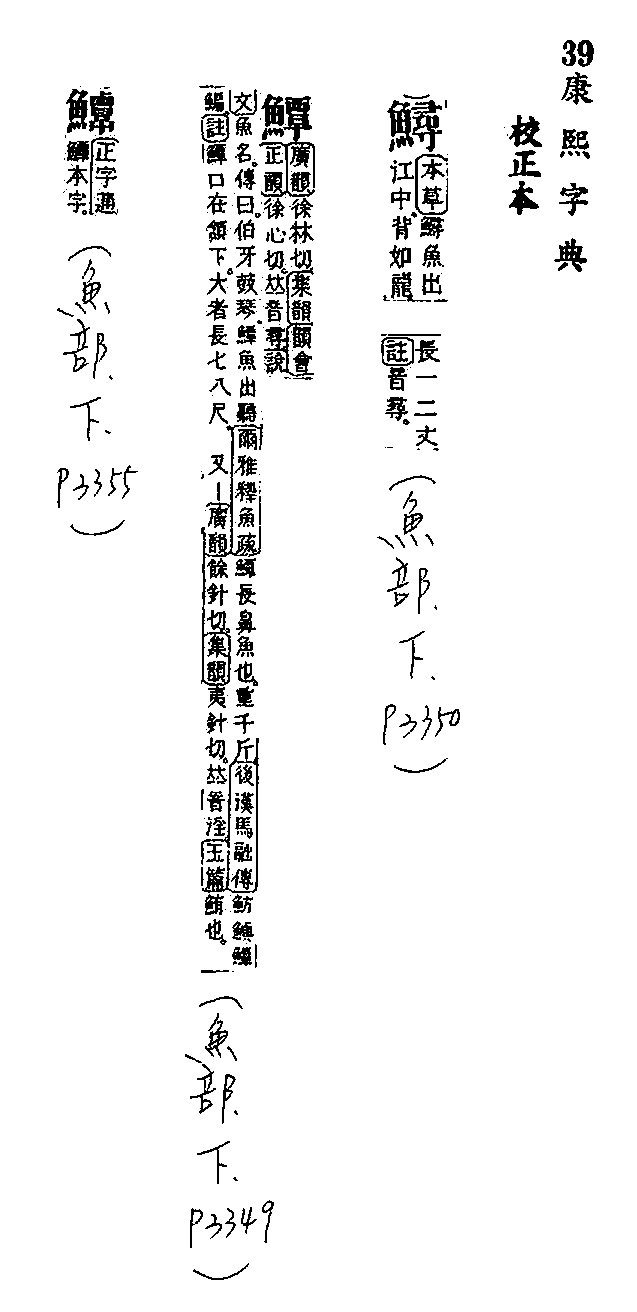 39 康熙字典
校正本
鱘 本草 鱘魚出
江中。背如龍
長一二丈
註 音尋。
(魚部.下.P3350)
鱏 廣韻 徐林切 集韻 韻會
正韻 徐心切。𠀤音尋。說
文 魚名。傳曰。伯牙鼓琴。鱏魚出聽 爾雅釋魚疏 鱏長鼻魚也。重千斤 後漢馬融傳 魴鱮鱏
鯿 註 鱏口在頷下。大者長七八尺。又 廣韻 餘針切。集韻 夷針切。𠀤音淫。玉篇 鮪也。
(魚部.下.P3349)
正字通
鱏本字。
(魚部.下.P3355)